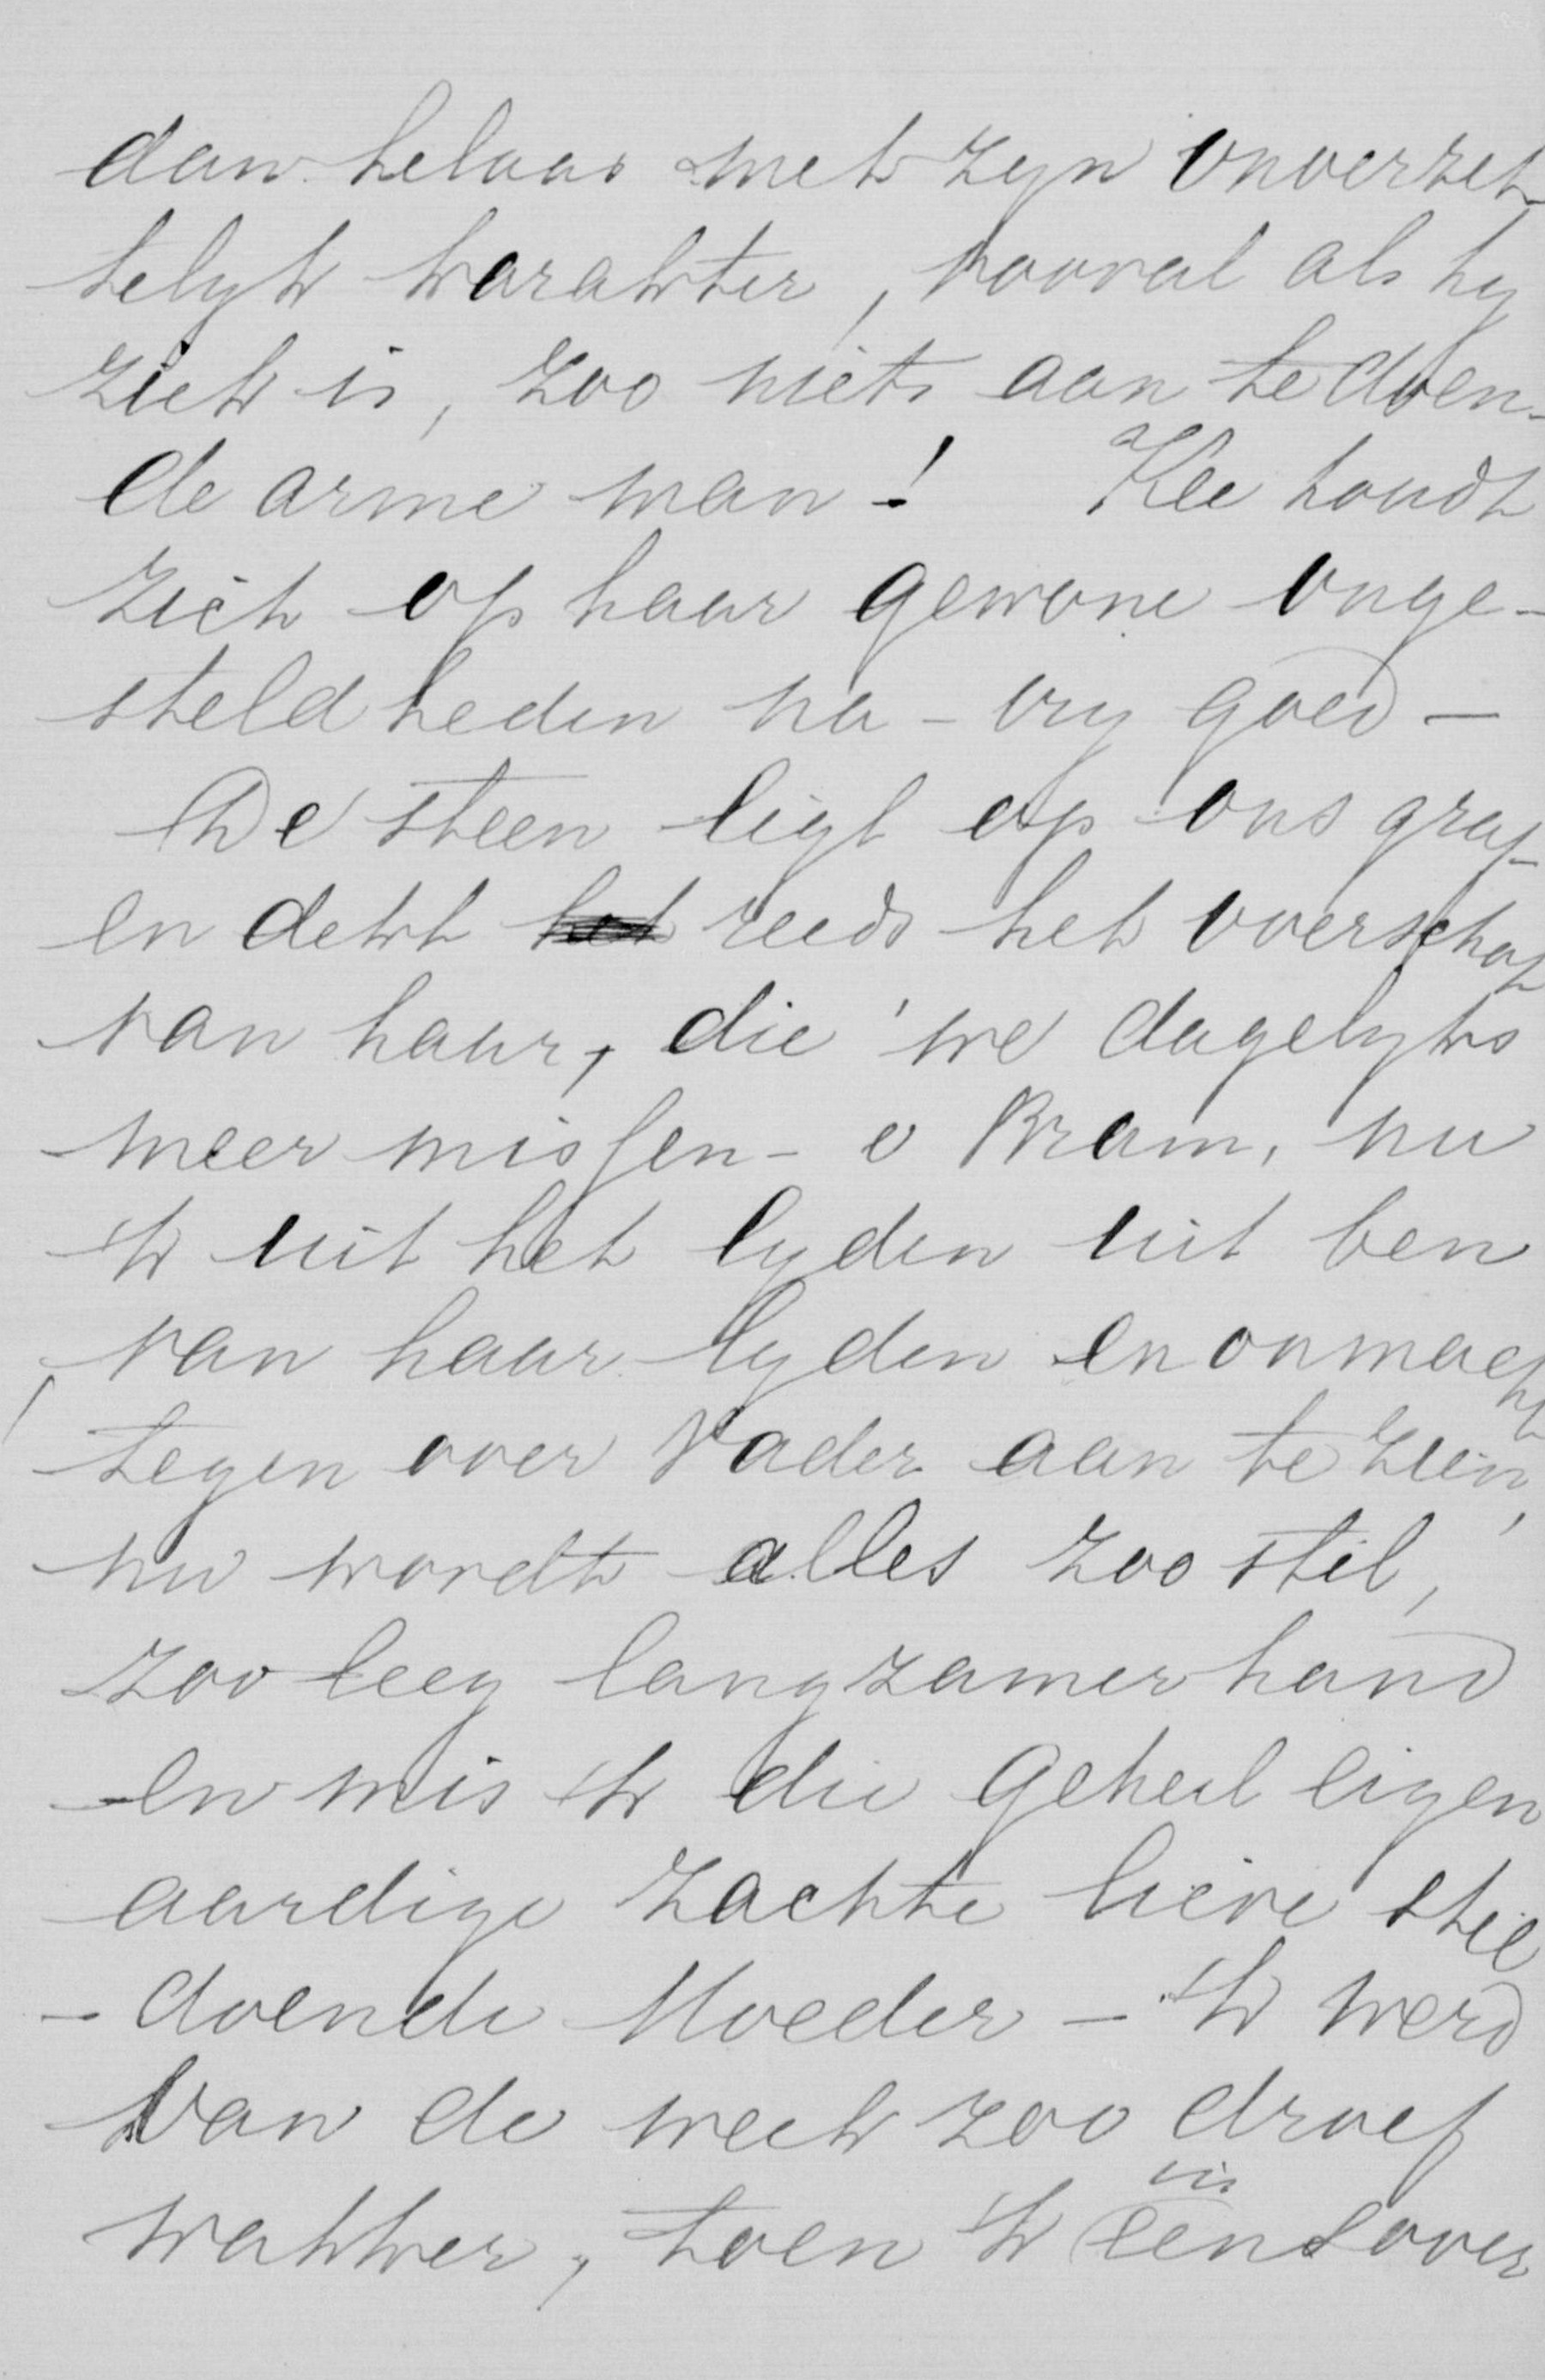 dan helaas met zyn onverzet-
telyk karakter, vooral als hy
ziek is, zoo niets aan te doen -
de arme man! Kee houdt
zich op haar gewone onge-
steldheden na - vry goed -
De steen ligt op ons graf -
en dekt het reeds het overschot
van haar, die we dagelyks
meer missen - o Bram, nu
ik uit het lyden uit ben
van haar lyden en onmacht
tegen over Vader aan te zien,
nu wordt alles zoo stil,
zoo leeg langzamerhand
en mis ik die geheel eigen
aardige zachte lieve stil
- doende Moeder - Ik werd
van de week zoo droef
wakker, toen ik in eens over